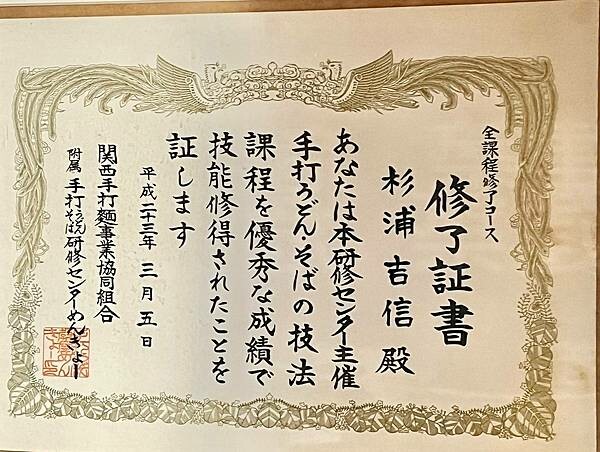 全課程修了コース
修了証書
杉浦吉信殿
あなたは本研修センター主催
手打うどん・そばの技法
課程を優秀な成績で
技能修得されたことを
証します
平成二十三年 三月 五日
関西手打麵事業協同組合
附属 手打うどんそば研修センターめんきょー